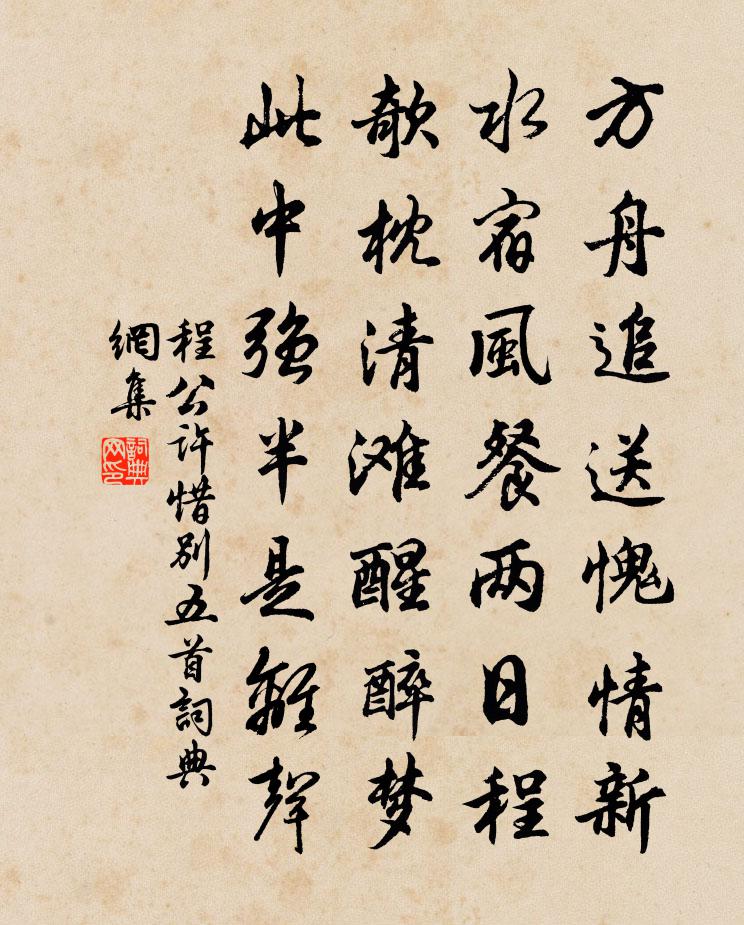 方舟追送愧情新
水宿風餐两日程
欹枕清滩醒醉梦
此中强半是離聲
程公许惜别五首詞典
網集
詞典
网印